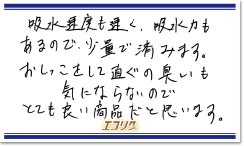 吸水速度も速く、吸水力も
あるので、少量で済みます。
おしっこをして直ぐの臭いも
気にならないので
とても良い商品だと思います。
エコリク